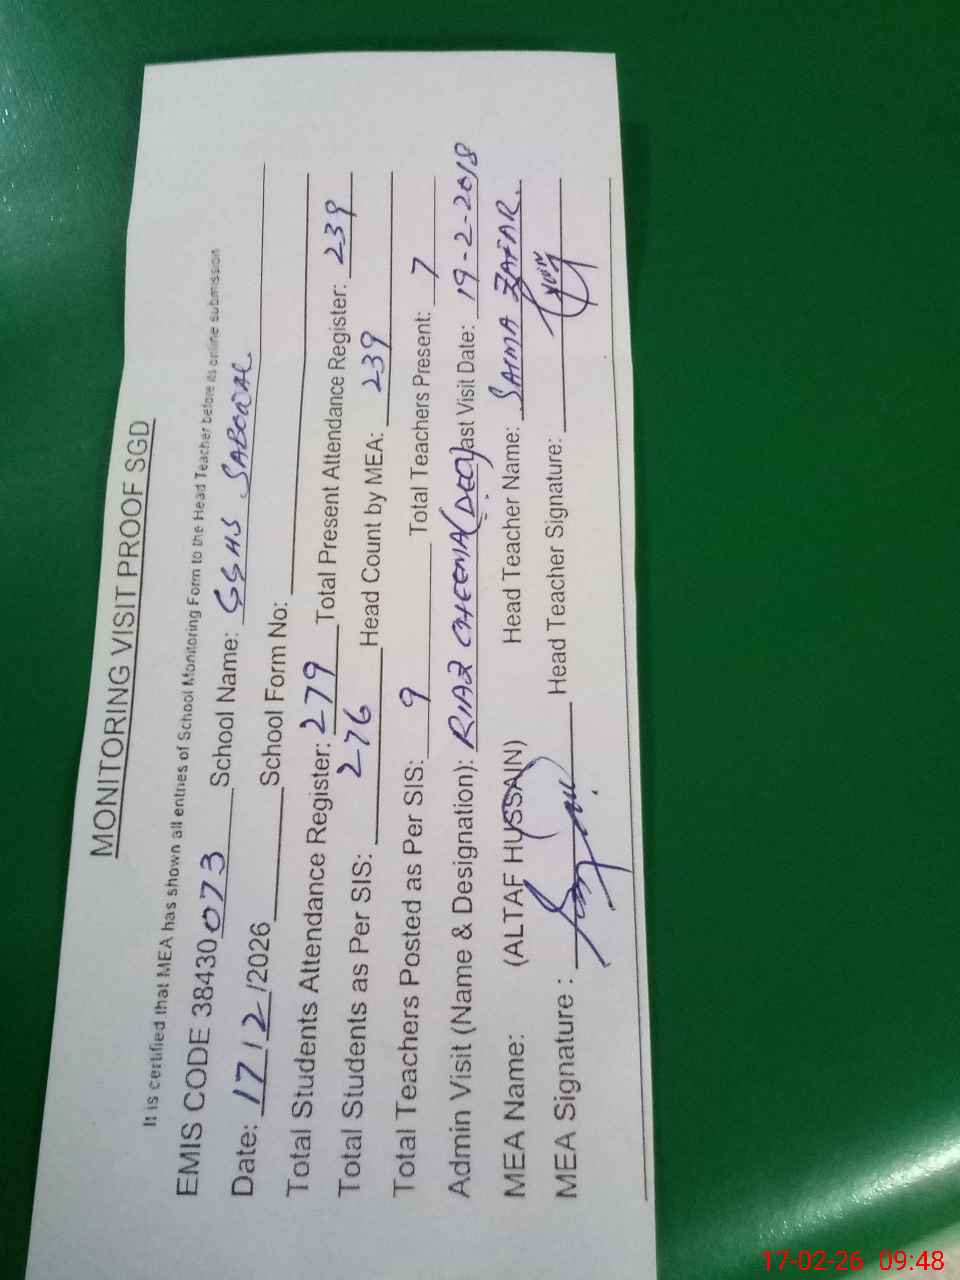 MONITORING VISIT PROOF SGD
It is certified that MEA has shown all entries of School Monitoring Form to the Head Teacher before its online submission
EMIS CODE 38430073 School Name: GGHS SABOWAL
Date: 17/2/2026 School Form No:
Total Students Attendance Register: 279 Total Present Attendance Register: 239
Total Students as Per SIS: 276 Head Count by MEA: 239
Total Teachers Posted as Per SIS: 9 Total Teachers Present: 7
Admin Visit (Name & Designation): RIAZ CHEEMA (DEO) Last Visit Date: 19-2-2018
MEA Name: (ALTAF HUSSAIN) Head Teacher Name: SAIMA ZAFAR.
MEA Signature : Head Teacher Signature:
17-02-26 09:48